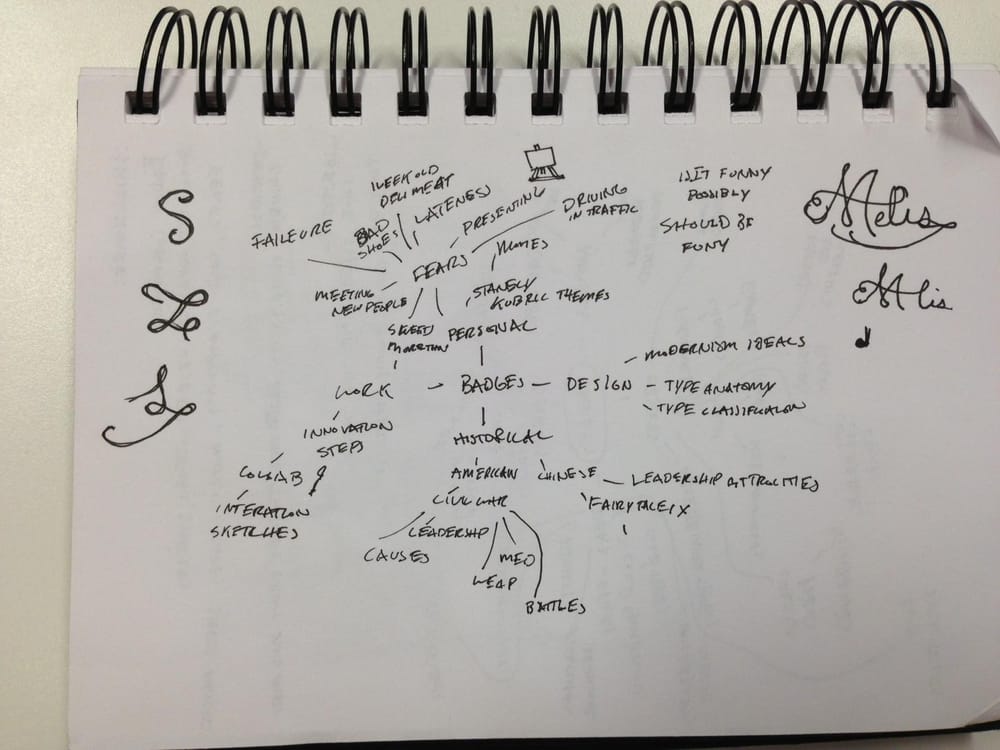 S
FAILEURE
WEEK OLD
DELI MEAT
BAD
SHOES
LATENES
PRESENTING
DRIVING
IN TRAFFIC
IS IT FUNNY
POSSIBLY
SHOULD BE
FUNY
Melis
FEARS
MEETING
NEW PEOPLE
STANELY
KUBRIC THEMES
PERSONAL
WORK
BADGES
DESIGN
MODERNISM IDEALS
TYPE ANATOMY
TYPE CLASSIFICATION
INNOVATION
STEPS
HISTORICAL
COLLAB
AMERICAN
CHINESE
LEADERSHIP ATTROCITIES
INTERATION
SKETCHES
CIVIL WAR
LEADERSHIP
CAUSES
MED
WEAP
BATTLES